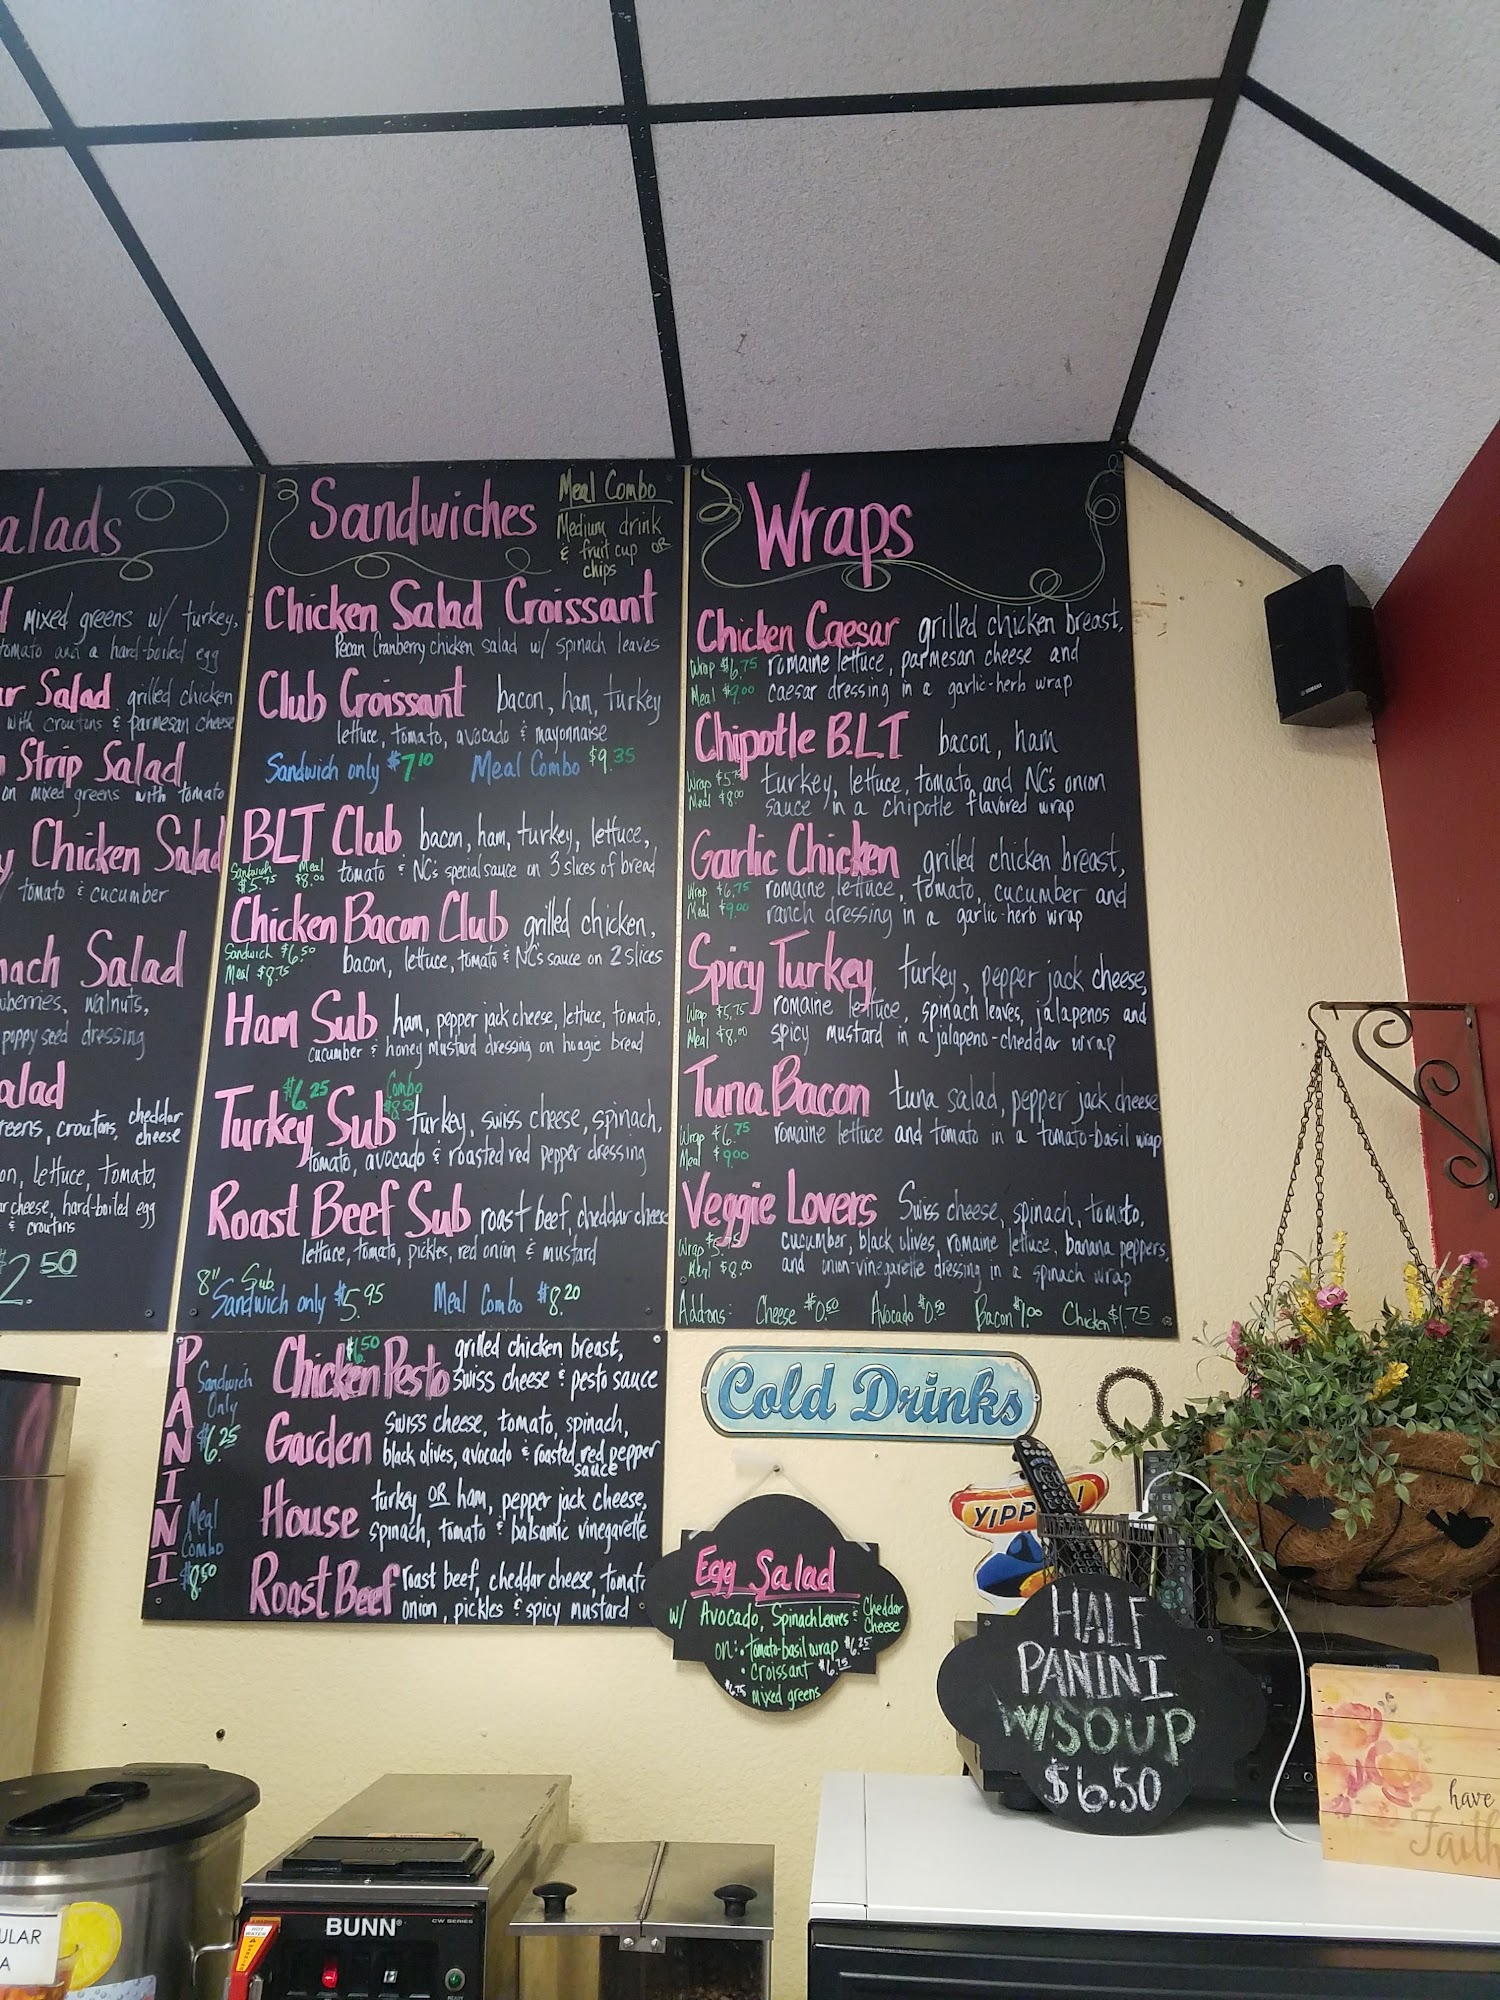 alads
mixed greens w/ turkey,
tomato and a hard-boiled egg
ar Salad grilled chicken
with croutons & parmesan cheese
Strip Salad
on mixed greens with tomato
y Chicken Salad
tomato & cucumber
nach Salad
walnuts,
poppy seed dressing
alad
reens, croutons, cheddar
cheese
on, lettuce, tomato,
ar cheese, hard-boiled egg
& croutons
2.50
Sandwiches
Meal Combo
Medium drink
& fruit cup OR
chips
Chicken Salad Croissant
Pecan Cranberry chicken salad w/ spinach leaves
Club Croissant bacon, ham, turkey
lettuce, tomato, avocado & mayonnaise
Sandwich only $7.10 Meal Combo $9.35
BLT Club bacon, ham, turkey, lettuce,
Sandwich $5.75 Meal $8.00 tomato & NC's special sauce on 3 slices of bread
Chicken Bacon Club grilled chicken,
Sandwich $6.50
Meal $8.75 bacon, lettuce, tomato & NC's sauce on 2 slices
Ham Sub ham, pepper jack cheese, lettuce, tomato,
cucumber & honey mustard dressing on hoagie bread
$6.25 Combo $8.50
Turkey Sub turkey, swiss cheese, spinach,
tomato, avocado & roasted red pepper dressing
Roast Beef Sub roast beef, cheddar cheese
lettuce, tomato, pickles, red onion & mustard
8" Sub
Sandwich only $5.95 Meal Combo $8.20
PANINI
Sandwich
Only
$6.25
Meal
Combo
$8.50
$6.50
Chicken Pesto grilled chicken breast,
swiss cheese & pesto sauce
Garden swiss cheese, tomato, spinach,
black olives, avocado & roasted red pepper
sauce
House turkey OR ham, pepper jack cheese,
spinach, tomato & balsamic vinegarette
Roast Beef roast beef, cheddar cheese, tomato
onion, pickles & spicy mustard
Wraps
Chicken Caesar grilled chicken breast,
Wrap $6.75 romaine lettuce, parmesan cheese and
Meal $9.00 caesar dressing in a garlic-herb wrap
Chipotle B.L.T bacon, ham
Wrap $5.75 turkey, lettuce, tomato and NC's onion
Meal $8.00 sauce in a chipotle flavored wrap
Garlic Chicken grilled chicken breast,
Wrap $6.75 romaine lettuce, tomato, cucumber and
Meal $9.00 ranch dressing in a garlic-herb wrap
Spicy Turkey turkey, pepper jack cheese,
Wrap $5.75 romaine lettuce, spinach leaves, jalapenos and
Meal $8.00 spicy mustard in a jalapeno-cheddar wrap
Tuna Bacon tuna salad, pepper jack cheese
Wrap $6.75 romaine lettuce and tomato in a tomato-basil wrap
Meal $9.00
Veggie Lovers Swiss cheese, spinach, tomato,
Wrap $5.75 cucumber, black olives, romaine lettuce, banana peppers,
Meal $8.00 and onion-vinegarette dressing in a spinach wrap
Add-ons: Cheese $0.50 Avocado $0.50 Bacon $1.00 Chicken $1.75
YAMAHA
Cold Drinks
YIPP
Egg Salad
w/ Avocado, Spinach Leaves & Cheddar
Cheese
on: • tomato-basil wrap $6.25
• croissant $6.75
$6.75 mixed greens
HALF
PANINI
W/SOUP
$6.50
have
Faith
BUNN
CW SERIES
HOT
WATER
READY
ULAR
A